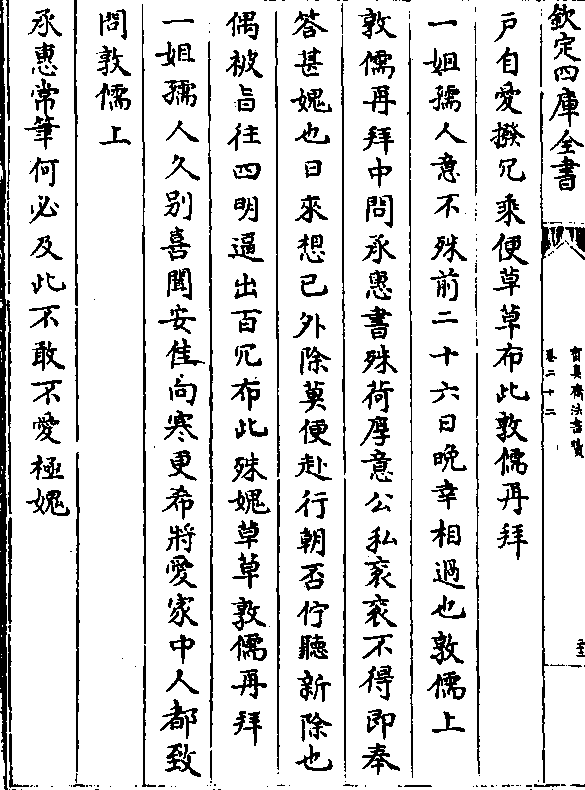 欽定四庫全書
寳真齋法書贊
卷二十二
戸自愛撥冗乘便草草布此敦儒再拜
一姐孺人意不殊前二十六日晚幸相過也敦儒上
敦儒再拜中問承惠書殊荷厚意公私衮衮不得即奉
答甚媿也日來想已外除莫便赴行朝否佇聽新除也
偶被旨往四明逼出百冗布此殊媿草草敦儒再拜
一姐孺人久别喜聞安佳向寒更希將愛家中人都致
問敦儒上
承惠常筆何必及此不敢不愛極媿